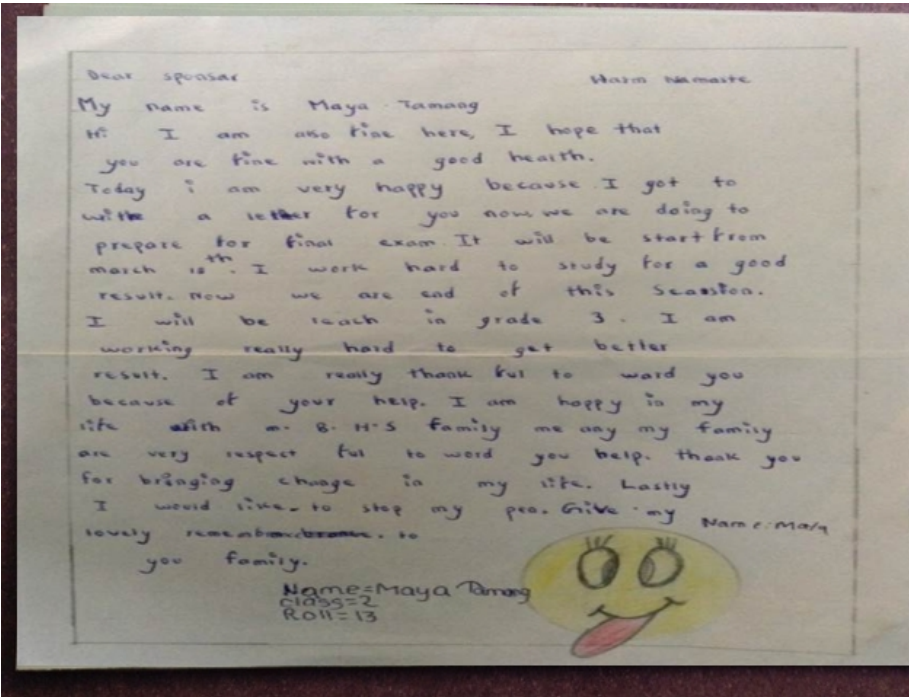 Dear sponsar Warm Namaste
My name is Maya Tamang
Hi I am also fine here, I hope that
you are fine with a good health.
Today i am very happy because I got to
write a letter for you now we are doing to
prepare for final exam. It will be start from
march th. I work hard to study for a good
result. Now we are end of this Seassion.
I will be reach in grade 3. I am
working really hard to get better
result. I am really thank ful to ward you
because of your help. I am happy in my
life with m. B. H. S family me any my family
are very respect ful to word you help. thank you
For bringing change in my life. Lastly
I would like to stop my pen. Give my
lovely to
you family.
Name: Maya
Name=Maya Tamang
class=2
Roll=13